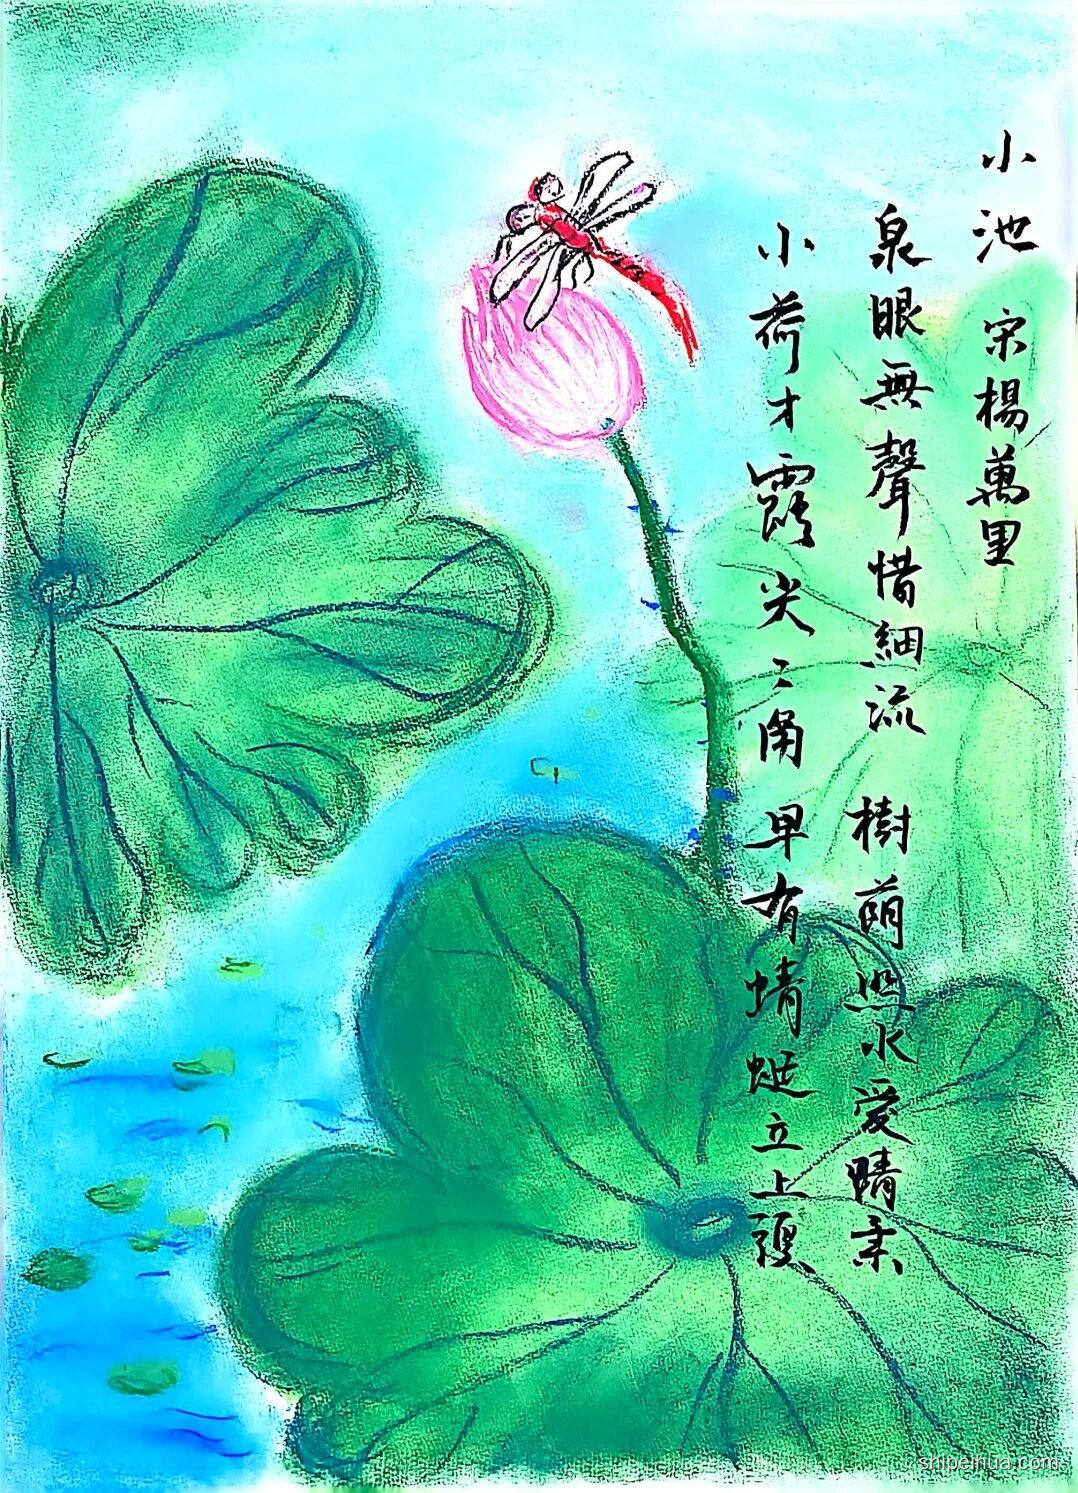 小池 宋楊萬里
泉眼無聲惜細流 樹荫照水愛晴柔
小荷才露尖〻角 早有蜻蜓立上頭
shipeihua.com